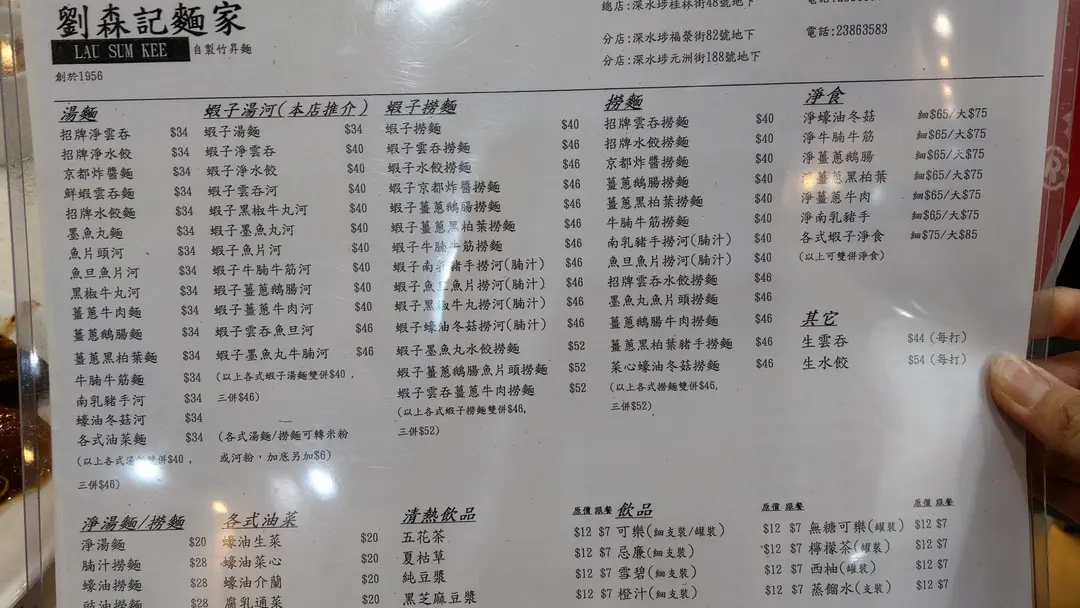 劉森記麵家
LAU SUM KEE 自製竹昇麵
創於1956
總店:深水埗桂林街48號地下
分店:深水埗福榮街82號地下 電話:23863583
分店:深水埗元洲街188號地下
湯麵
招牌淨雲吞 $34
招牌淨水餃 $34
京都炸醬麵 $34
鮮蝦雲吞麵 $34
招牌水餃麵 $34
墨魚丸麵 $34
魚片頭河 $34
魚旦魚片河 $34
黑椒牛丸河 $34
薑蔥牛肉麵 $34
薑蔥鵝腸麵 $34
薑蔥黑柏葉麵 $34
牛腩牛筋麵 $34
南乳豬手河 $34
蠔油冬菇河 $34
各式油菜麵 $34
(以上各式湯麵雙併$40，
三併$46)
蝦子湯河(本店推介)
蝦子湯麵 $34
蝦子淨雲吞 $40
蝦子淨水餃 $40
蝦子雲吞河 $40
蝦子黑椒牛丸河 $40
蝦子墨魚丸河 $40
蝦子魚片河 $40
蝦子牛腩牛筋河 $40
蝦子薑蔥鵝腸河 $40
蝦子薑蔥牛肉河 $40
蝦子雲吞魚旦河 $46
蝦子墨魚丸牛腩河 $46
(以上各式蝦子湯麵雙併$40，
三併$46)
(各式湯麵/撈麵可轉米粉
或河粉，加底另加$6)
蝦子撈麵
蝦子撈麵 $40
蝦子雲吞撈麵 $46
蝦子水餃撈麵 $46
蝦子京都炸醬撈麵 $46
蝦子薑蔥鵝腸撈麵 $46
蝦子薑蔥黑柏葉撈麵 $46
蝦子牛腩牛筋撈麵 $46
蝦子南乳豬手撈河(腩汁) $46
蝦子魚旦魚片撈河(腩汁) $46
蝦子黑椒牛丸撈河(腩汁) $46
蝦子蠔油冬菇撈河(腩汁) $46
蝦子墨魚丸水餃撈麵 $52
蝦子薑蔥鵝腸魚片頭撈麵 $52
蝦子雲吞薑蔥牛肉撈麵 $52
(以上各式蝦子撈麵雙併$46,
三併$52)
撈麵
招牌雲吞撈麵 $40
招牌水餃撈麵 $40
京都炸醬撈麵 $40
薑蔥鵝腸撈麵 $40
薑蔥黑柏葉撈麵 $40
牛腩牛筋撈麵 $40
南乳豬手撈河(腩汁) $40
魚旦魚片撈河(腩汁) $40
招牌雲吞水餃撈麵 $46
墨魚丸魚片頭撈麵 $46
薑蔥鵝腸牛肉撈麵 $46
薑蔥黑柏葉豬手撈麵 $46
菜心蠔油冬菇撈麵 $46
(以上各式撈麵雙併$46,
三併$52)
淨食
淨蠔油冬菇 細$65/大$75
淨牛腩牛筋 細$65/大$75
淨薑蔥鵝腸 細$65/大$75
淨薑蔥黑柏葉 細$65/大$75
淨薑蔥牛肉 細$65/大$75
淨南乳豬手 細$65/大$75
各式蝦子淨食 細$75/大$85
(以上可雙併淨食)
其它
生雲吞 $44(每打)
生水餃 $54(每打)
淨湯麵/撈麵
淨湯麵 $20
腩汁撈麵 $28
蠔油撈麵 $28
豉油撈麵 $28
各式油菜
蠔油生菜 $20
蠔油菜心 $20
蠔油介蘭 $20
腐乳通菜 $20
清熱飲品 原價 跟餐
五花茶 $12 $7
夏枯草 $12 $7
純豆漿 $12 $7
黑芝麻豆漿 $12 $7
飲品 原價 跟餐
可樂(細支裝/罐裝) $12 $7
忌廉(細支裝) $12 $7
雪碧(細支裝) $12 $7
橙汁(細支裝) $12 $7
原價 跟餐
無糖可樂(罐裝) $12 $7
檸檬茶(罐裝) $12 $7
西柚(罐裝) $12 $7
蒸餾水(支裝) $12 $7